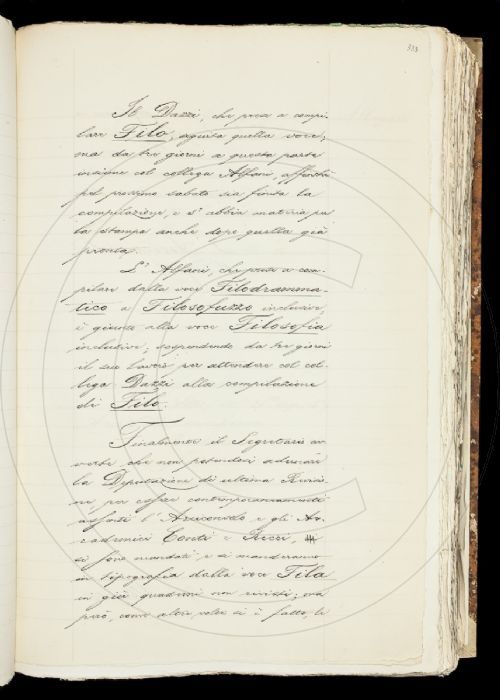 333
Il Dazzi, che prese a compi-
lare Filo, aggiusta quella voce;
ma da tre giorni a questa parte
insieme col collega Alfani, affinchè
pel prossimo sabato sia finita la
compilazione, e s'abbia materia per
la stampa anche dopo quella già
pronta.
L'Alfani, che prese a com-
pilare dalla voce Filodramma-
tico a Filosofuzzo inclusive,
è giunto alla voce Filosofia
inclusive; sospendendo da tre giorni
il suo lavoro per attendere col col-
lega Dazzi alla compilazione
di Filo.
Finalmente il Segretario av-
verte che non potendosi adunare
la Deputazione di ultima Revisio-
ne, per essere contemporaneamente
assenti l'Arciconsolo e gli Ac-
cademici Conti e Ricci,
si sono mandati e si manderanno
in tipografia dalla voce Fila
in giù quaderni non rivisti; ma
però, come altre volte si è fatto, le